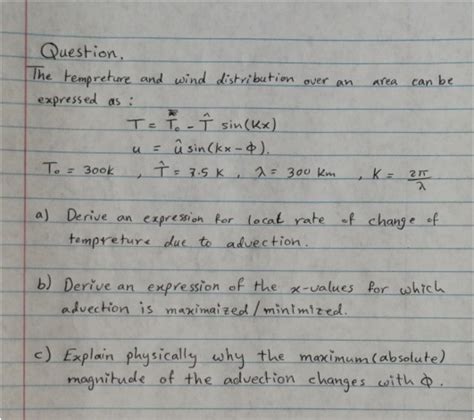 Question.
The tempreture and wind distribution over an area can be
expressed as :
T = T₀ - T̂ sin(kx)
u = û sin(kx - ϕ).
T₀ = 300k , T̂ = 7.5 K , λ = 300 km , K = 2π/λ
a) Derive an expression for local rate of change of
tempreture due to advection.
b) Derive an expression of the x-values for which
advection is maximaized/minimized.
c) Explain physically why the maximum (absolute)
magnitude of the advection changes with ϕ.